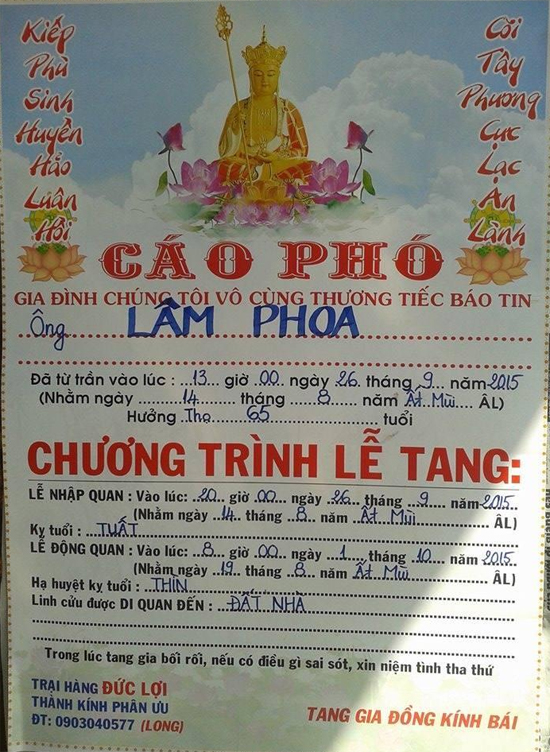 Kiếp
Phù
Sinh
Huyền
Hảo
Luân
Hồi
Cõi
Tây
Phương
Cực
Lạc
An
Lành
CÁO PHÓ
GIA ĐÌNH CHÚNG TÔI VÔ CÙNG THƯƠNG TIẾC BÁO TIN
Ông LÂM PHOA
Đã từ trần vào lúc : 13 giờ 00 ngày 26 tháng 9 năm 2015
(Nhằm ngày 14 tháng 8 năm Ất Mùi ÂL)
Hưởng Thọ 65 tuổi
CHƯƠNG TRÌNH LỄ TANG:
LỄ NHẬP QUAN : Vào lúc: 20 giờ 00 ngày 26 tháng 9 năm 2015
(Nhằm ngày 14 tháng 8 năm Ất Mùi ÂL)
Kỵ tuổi : TUẤT
LỄ ĐỘNG QUAN : Vào lúc: 8 giờ 00 ngày 1 tháng 10 năm 2015
(Nhằm ngày 19 tháng 8 năm Ất Mùi ÂL)
Hạ huyệt kỵ tuổi : THÌN
Linh cửu được DI QUAN ĐẾN : ĐẤT NHÀ
Trong lúc tang gia bối rối, nếu có điều gì sai sót, xin niệm tình tha thứ
TRẠI HÀNG ĐỨC LỢI
THÀNH KÍNH PHÂN ƯU
ĐT: 0903040577 (LONG)
TANG GIA ĐỒNG KÍNH BÁI